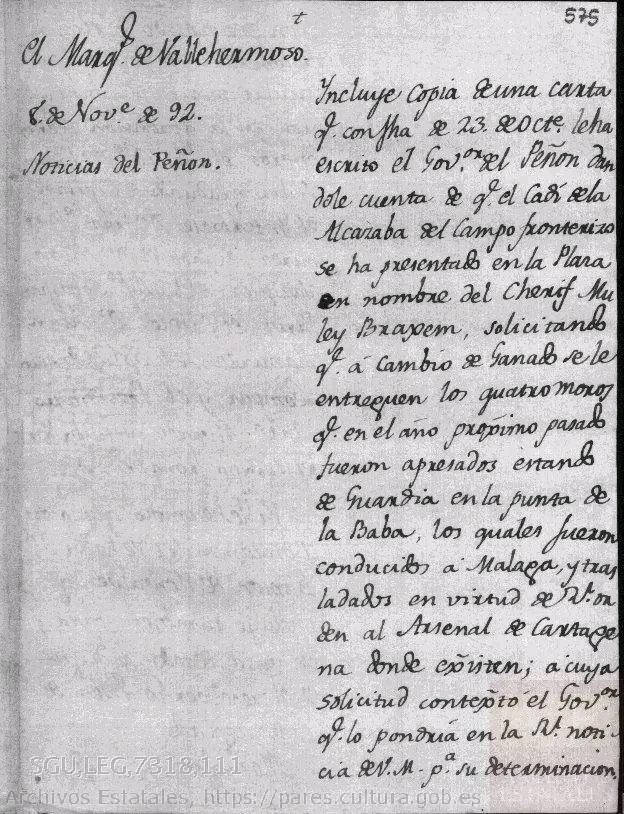 575
El Marq.^s de Vallehermoso.
8. de Nov.^e de 92.
Noticias del Peñon.
Incluye copia de una carta
q.^e con fha de 23. de Oct.^e le ha
escrito el Gov.^or del Peñon dan
dole cuenta de q.^e el Cadí de la
Alcazaba del Campo fronterizo
se ha presentado en la Plaza
en nombre del Cherif Mu
ley Braxem, solicitando
q.^e á cambio de Ganado se le
entreguen los quatro moros
q.^e en el año próximo pasado
fueron apresados estando
de Guardia en la punta de
la Baba, los quales fueron
conducidos á Malaga, y tras
ladados en virtud de R.^l or
den al Arsenal de Cartage
na donde exîsten; a cuya
solicitud contextó el Gov.^or
q.^e lo pondria en la R.^l noti
cia de V. M. p.^a su determinacion.
SGU,LEG,7318,111
Archivos Estatales, https://pares.cultura.gob.es